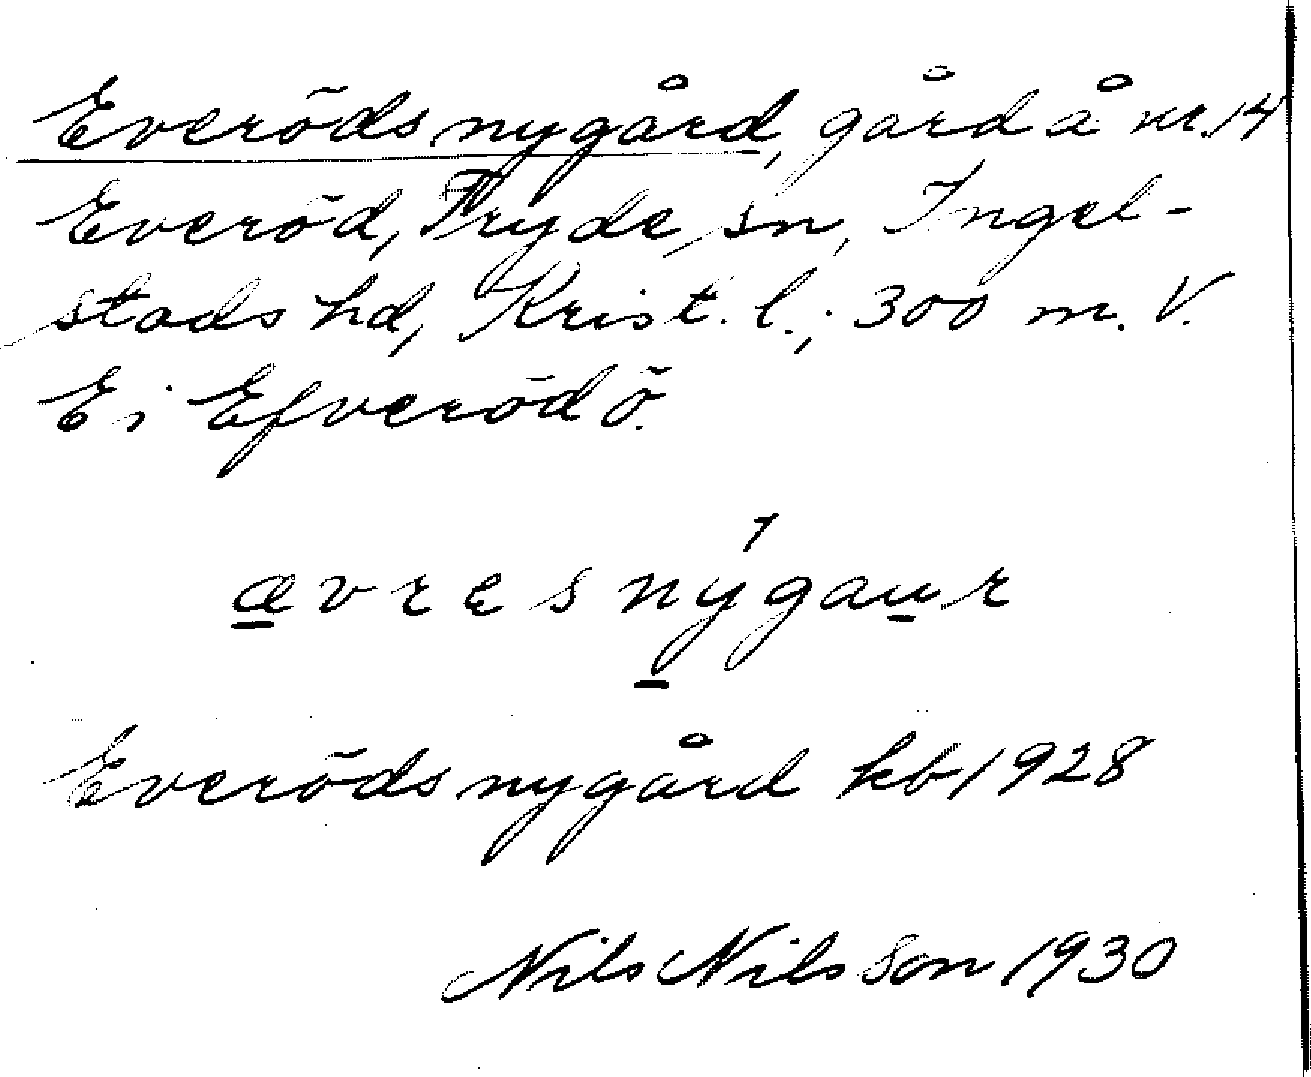 Everödsnygård, gård å nr. 14
Everöd, Tryde sn, Ingel-
stads hd, Krist. l.; 300 m. V.
E i Efveröd ö.
ævresnýgaur
Everödsnygård kb 1928
Nils Nilsson 1930